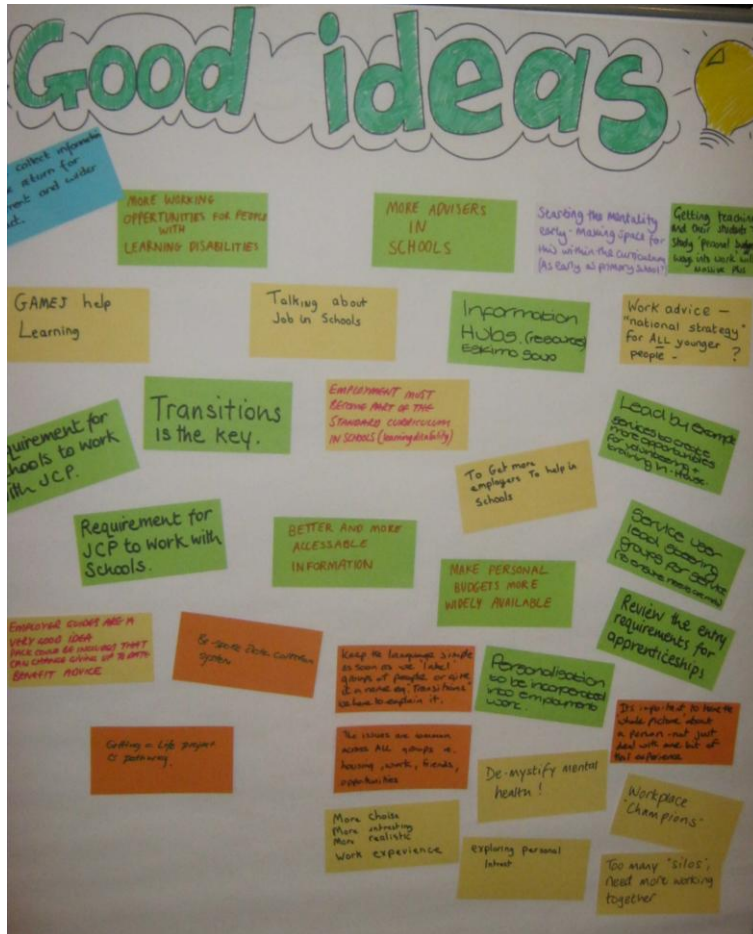 Good ideas
collect information
return for
and wider
MORE WORKING
OPPERTUNITIES FOR PEOPLE
WITH
LEARNING DISABILITIES
MORE ADVISERS
IN
SCHOOLS
Starting the Mentality
early - Making Space for
this within the curriculum
(As early as primary school?)
Getting teaching
and their students
study 'personal budgets
ways into work with
massive
GAMES help
Learning
Talking about
Job in Schools
Information
Hubs. (resources)
Eskimo Soup
Work advice -
"national strategy"
for ALL younger
people - ?
quirement for
hools to work
ith JCP.
Transitions
is the key.
EMPLOYMENT MUST
BECOME PART OF THE
STANDARD CURRICULUM
IN SCHOOLS (learning disability)
Lead by example
services to create
more opportunities
for volunteering +
training in-house.
To Get more
employers To help in
Schools
Requirement for
JCP to work with
Schools.
BETTER AND MORE
ALLESSABLE
INFORMATION
MAKE PERSONAL
BUDGETS MORE
WIDELY AVAILABLE
Service user
lead steering
groups for service
to ensure needs are met
Review the entry
requirements for
apprenticeships
EMPLOYER GUIDES ARE A
VERY GOOD IDEA
PACK COULD BE INCLUDED THAT
CAN CHANGE GIVING UP TO DATE
BENEFIT ADVICE
Be-spoke Data collection
system
Keep the language simple
as soon as we 'label'
groups of people or give
it a name eg 'Transitions'
we have to explain it.
Personalisation
to be incorporated
into employment
work.
Its important to have the
'whole picture' about
a person - not just
deal with one bit of
their experience
Getting a Life project
is pathway.
The issues are common
across ALL groups ie.
housing, work, friends,
opportunities
De-mystify mental
health!
Workplace
"Champions"
More Choise
More intresting
More realistic
Work experience
exploring personal
Intrest
Too many 'silos',
need more working
together